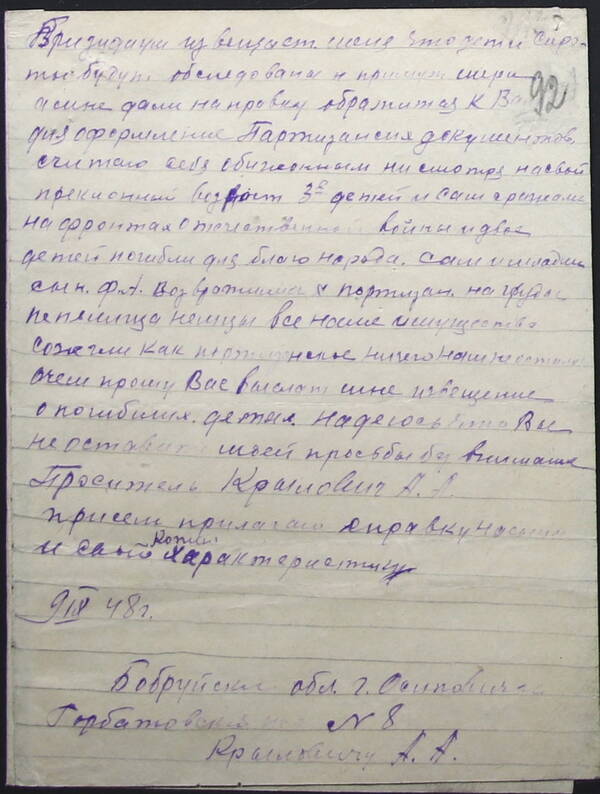 92
Призидиум известст. меня что дети сиро-
ты будут обследованы и примут меры
а мне дали направку обратится к Вам
для оформление Партизанския документов,
считаю себя обиженным нисмотря на свой
преклонный возраст 3е детей и сам сражали
на фронтах отечественной войны и двое
детей погибли для благо народа. сам и младши
сын. ф.А. возвратились с партизан. на груды
пепелища немцы все наше имущество
сожгли как партизанское ничего нам не остал
очем прошу Вас выслат мне извещение
о погибших. детях. надеюсь что Вы
не оставите моей просьбы без внимания
Проситель Крылович А. А.
присем прилагаю справку на сына
и свои копии характеристику
9/IX 48 г.
Бобруйская обл. г. Осиповичи
Горбатовская № 8
Крыловичу А. А.